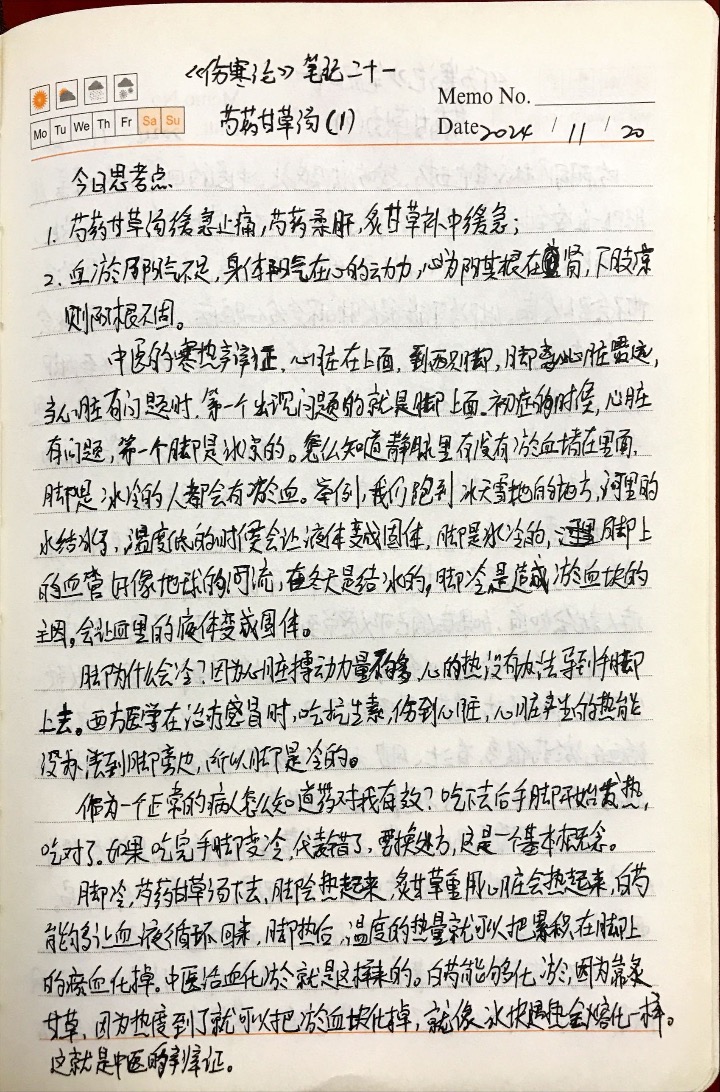 《伤寒论》笔记二十一
Memo No.
Mo Tu We Th Fr Sa Su
芍药甘草汤(1)
Date 2024 / 11 / 20
今日思考点
1. 芍药甘草汤缓急止痛,芍药柔肝,炙甘草补中缓急;
2. 血瘀 阳气不足,身体阳气在心的动力,心为阳其根在肾,下肢凉
则阳根不固。
中医的寒热辨证,心脏在上面,到两只脚,脚离心脏最远,
当心脏有问题时,第一个出现问题的就是脚上面。初症的时候,心脏
有问题,第一个脚是冰凉的。怎么知道静脉里有没有瘀血堵在里面,
脚是冰冷的人都会有瘀血。举例,我们跑到冰天雪地的地方,河里的
水结冰了,温度低的时候会让液体变成固体,脚是冰冷的,脚上
的血管好像地球的河流,在冬天是结冰的,脚冷是造成瘀血块的
主因,会让血里的液体变成固体。
脚为什么会冷?因为心脏搏动力量不够,心的热没有办法导到手脚
上去。西方医学在治疗感冒时,吃抗生素,伤到心脏,心脏产生的热能
没办法到脚旁边,所以脚是冷的。
作为一个正常的病人怎么知道药对我有效?吃下去后手脚开始发热,
吃对了。如果吃完手脚变冷,代表错了,要换处方,这是一个基本概念。
脚冷,芍药甘草汤下去,脚会热起来,炙甘草重用心脏会热起来,白芍
能够让血液循环回来,脚热后,温度的热量就可以把累积在脚上
的瘀血化掉。中医活血化瘀就是这样来的。白芍能够化瘀,因为靠炙
甘草,因为热度到了就可以把瘀血块化掉,就像冰块遇热会熔化一样。
这就是中医的辨证。